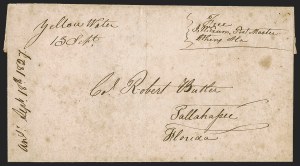 Yellow Water
15 Sept.
Free
Post Master
Col. Robert Butler
Tallahassee
Florida
Ansd. Sept 18th 1827.